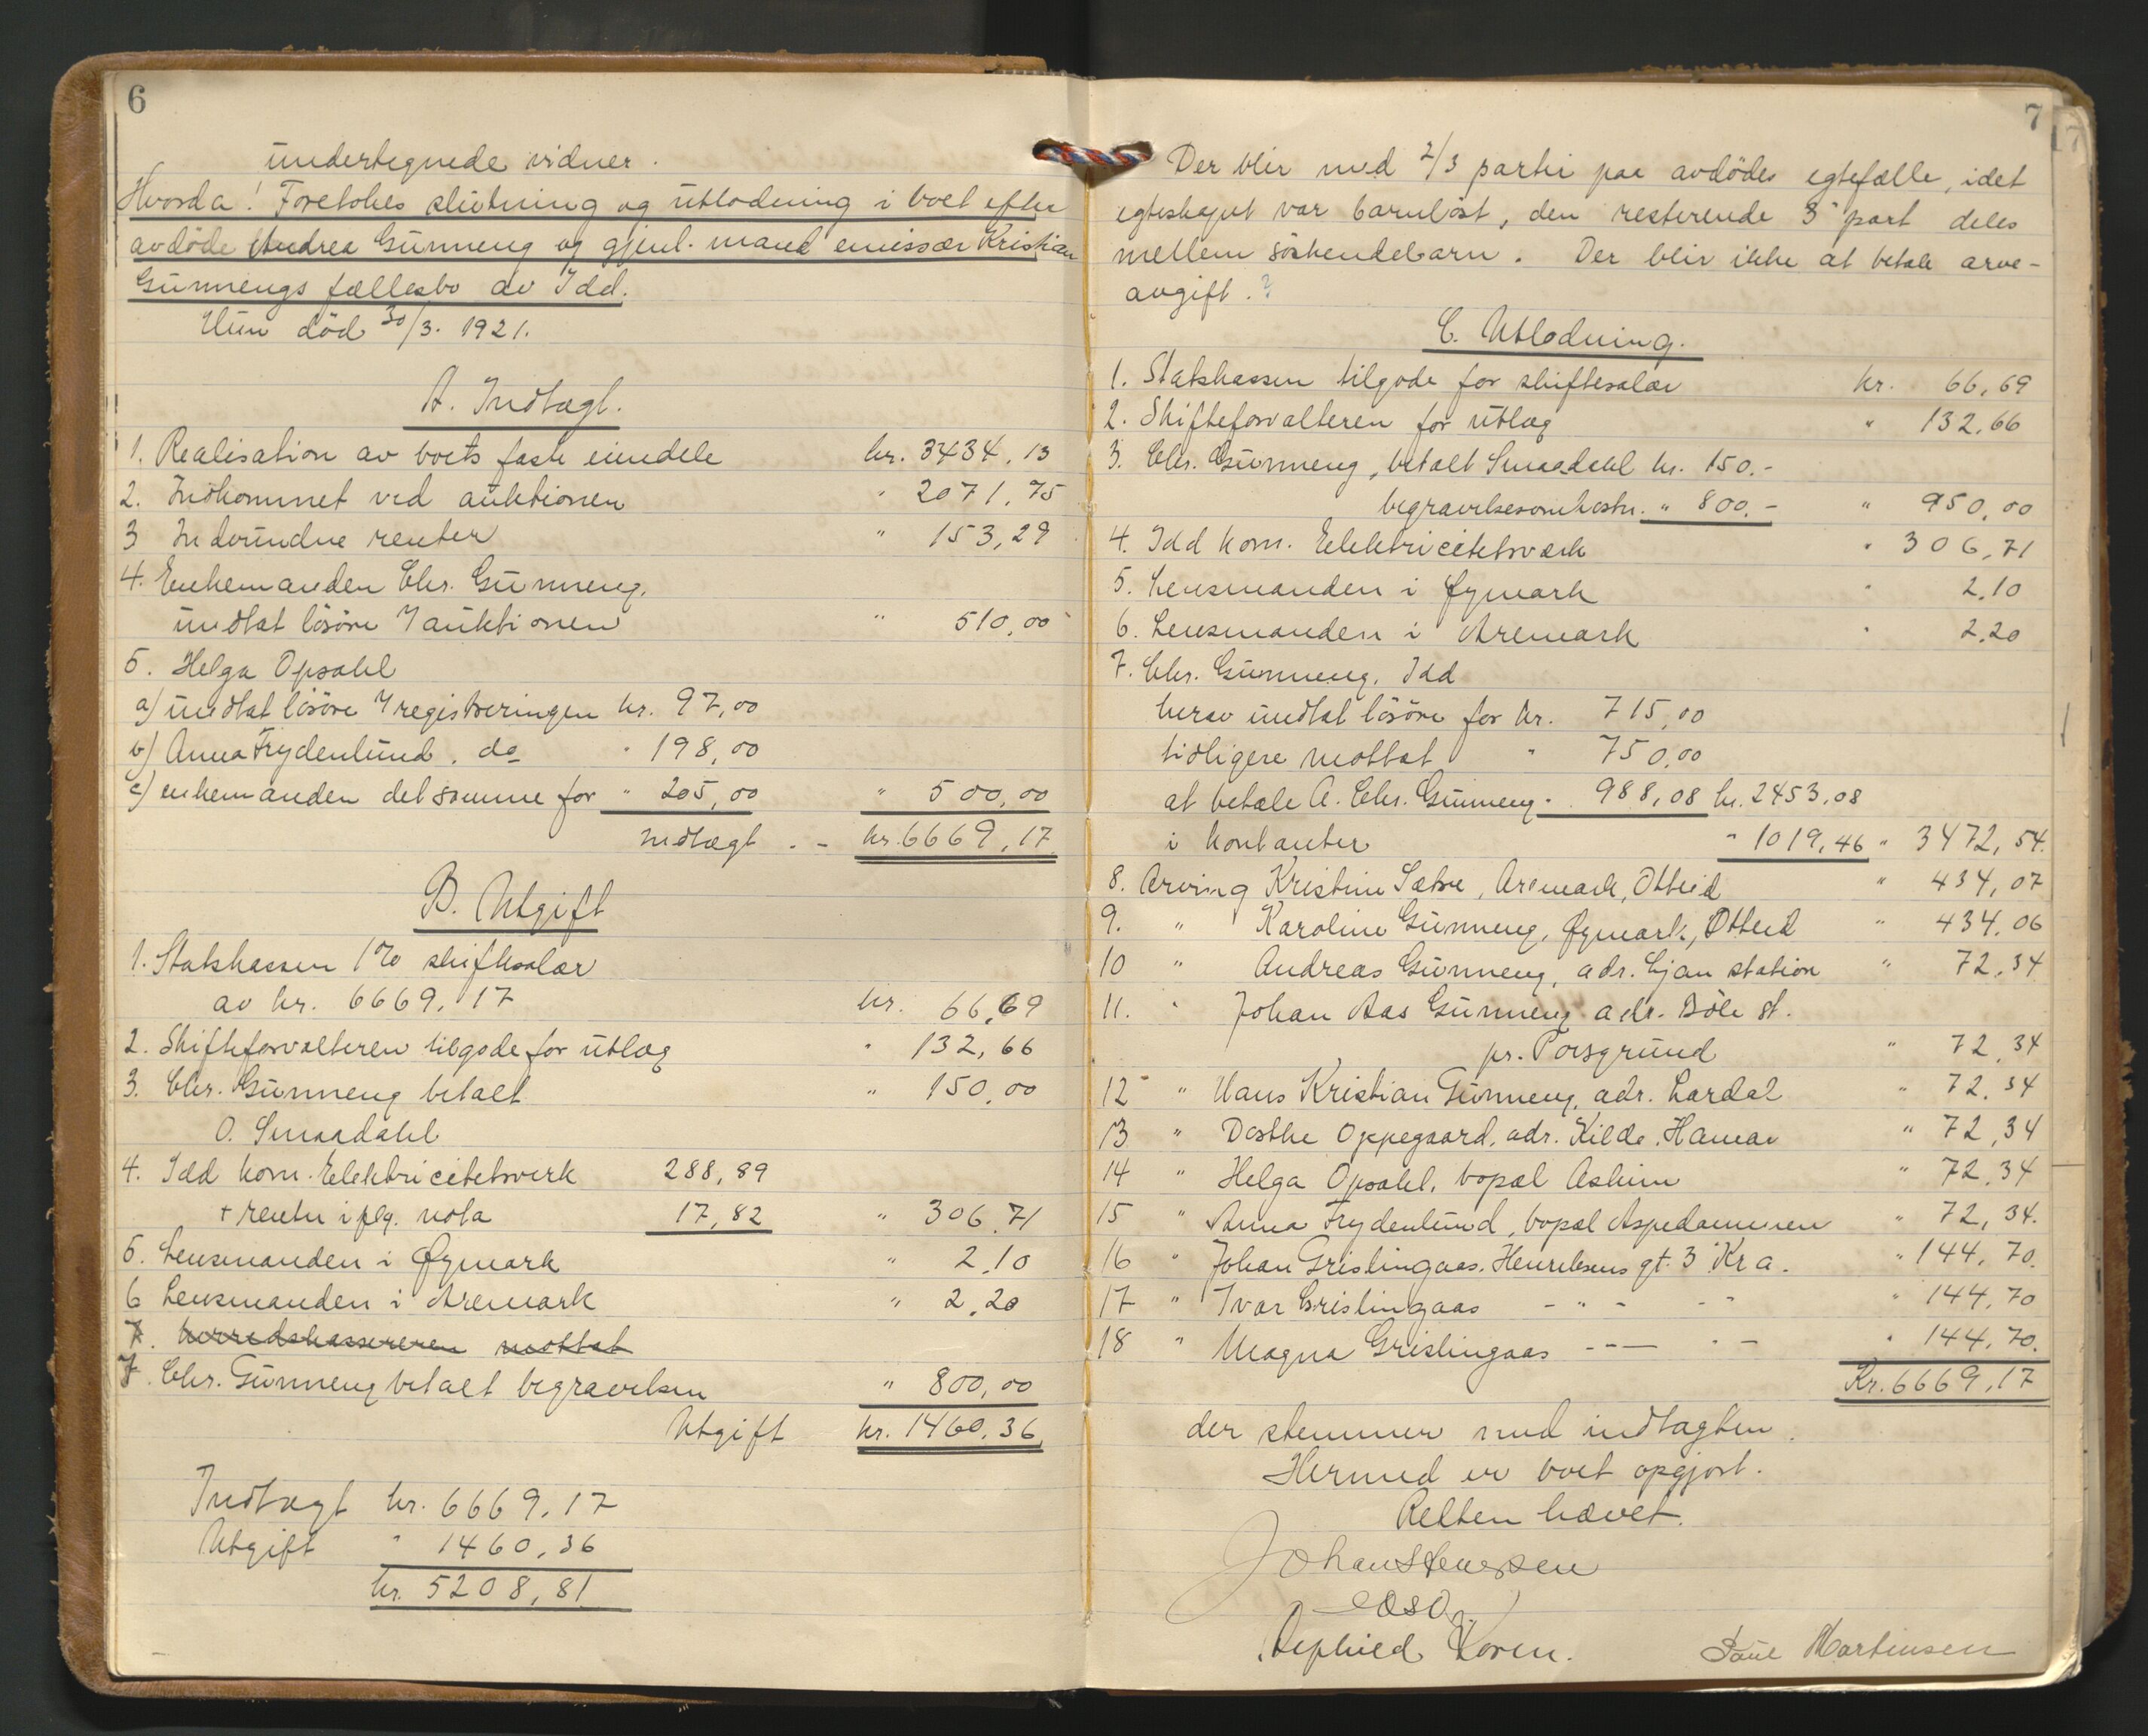 6
undertegnede vidner.
Hvorda! Foretokes slutning og utlodning i boet efter
avdøde Andrea Gunneng og gjenl. mand emissær Kristian
Gunnengs fællesbo av Idd.
Hun død 30/3. 1921.
A. Indtægt.
1. Realisation av boets faste eiendele kr. 3434,13
2. Indkommet ved auktionen " 2071,75
3 Indvundne renter " 153,29
4. Enkemanden Chr. Gunneng,
undtat løsøre / auktionen " 510,00
5. Helga Opsahl
a) undtat løsøre / registreringen kr. 97,00
b) Anna Frydenlund. do " 198,00
c) enkemanden det samme for " 205,00 " 500,00
Indtægt . - kr. 6669,17
B. Utgift
1. Statskassen 1% skiftesalær
av kr. 6669,17 kr. 66,69
2. Skifteforvalteren tilgode for utlæg " 132,66
3. Chr. Gunneng betalt " 150,00
O. Smaadahl
4. Idd kom. Elektricitetsverk 288,89
+ renter ifølg. nota 17,82 " 306,71
5. Lensmanden i Øymark " 2,10
6 Lensmanden i Aremark " 2,20
7. herredskassereren mottat
7. Chr. Gunneng betalt begravelsen " 800,00
Utgift kr. 1460,36
Indtægt kr. 6669,17
Utgift " 1460,36
kr. 5208,81
7
Der blir med 2/3 parti paa avdødes egtefælle, idet
egteskapet var barnløst, den resterende 3' part deles
mellem søskendebarn. Der blir ikke at betale arve-
avgift.?
C. Utlodning.
1. Statskassen tilgode for skiftesalær kr. 66,69
2. Skifteforvalteren for utlæg " 132,66
3. Chr. Gunneng, betalt Smaadahl kr. 150.-
begravelsesomkostn. " 800.- " 950,00
4. Idd kom. Elektricitetsværk " 306,71
5. Lensmanden i Øymark " 2,10
6. Lensmanden i Aremark " 2,20
7. Chr. Gunneng, Idd
herav undtat løsøre for kr. 715,00
tidligere mottat " 750,00
at betale A. Chr. Gunneng - 988,08 kr. 2453,08
i kontanter " 1019,46 " 3472,54.
8. Arving Kristine Sætre, Aremark, Otteid " 434,07
9. " Karoline Gunneng, Øymark, Otteid " 434,06
10 " Andreas Gunneng, adr. Ljan station " 72,34
11. " Johan Aas Gunneng adr. Bøle st.
pr. Porsgrund " 72,34
12 " Hans Kristian Gunneng, adr. Lardal " 72,34
13 " Dorthe Oppegaard, adr. Kilde, Hamar " 72,34
14 " Helga Opsahl, bopæl Askim " 72,34
15 " Anna Frydenlund, bopæl Aspedammen " 72,34.
16 " Johan Grislingaas. Henriksens gt. 3 Kra. " 144,70.
17 " Ivar Grislingaas - " - - " " 144,70
18 " Magna Grislingaas - - — - - " 144,70.
Kr. 6669,17
der stemmer med indtægten.
Hermed er boet opgjort.
Retten hævet.
Johan Stenersen
Paul Martinsen